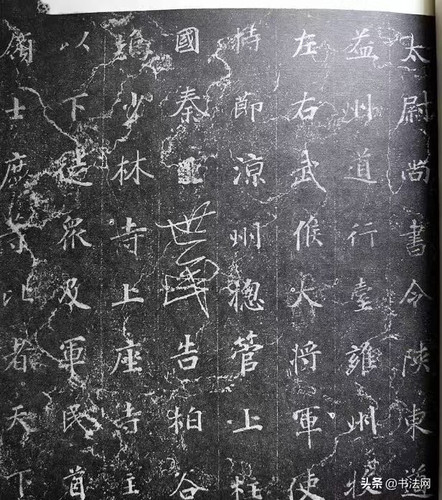 太尉尚書令陝東道
益州道行臺雍州牧
左右武候大將軍使
持節涼州總管上柱
國秦王世民告柏谷
塢少林寺上座寺主
以下徒眾及軍民首
領士庶等比者天下
头条@书法网